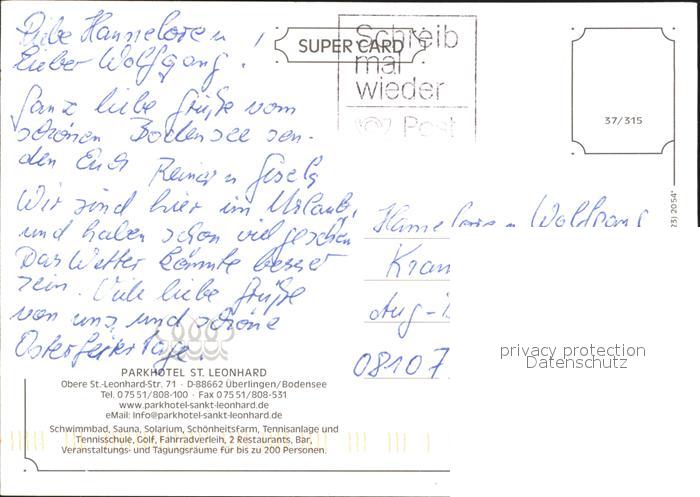 Liebe Hannelore u
Lieber Wolfgang !
Ganz liebe Grüße vom
schönen Bodensee sen-
den Euch Reiner u Gisela
Wir sind hier im Urlaub,
und haben schon viel gesehen
Das Wetter könnte besser
sein. Viele liebe Grüße
von uns und schöne
Osterfeiertage.
SUPER CARD
Schreib
mal
wieder
Post
37/315
Hannelore u Wolfgang
Kran
Aug-B
08107
privacy protection
Datenschutz
PARKHOTEL ST. LEONHARD
Obere St.-Leonhard-Str. 71 · D-88662 Überlingen/Bodensee
Tel. 0 75 51/808-100 · Fax 0 75 51/808-531
www.parkhotel-sankt-leonhard.de
eMail: Info@parkhotel-sankt-leonhard.de
Schwimmbad, Sauna, Solarium, Schönheitsfarm, Tennisanlage und
Tennisschule, Golf, Fahrradverleih, 2 Restaurants, Bar,
Veranstaltungs- und Tagungsräume für bis zu 200 Personen.